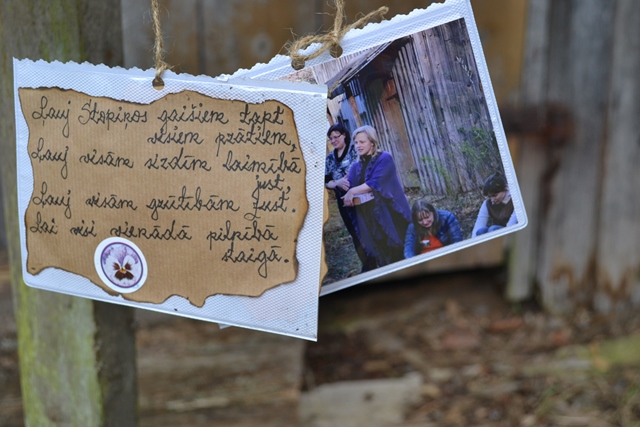 Lauj Stopiņos gaišiem tapt
visiem prātiem,
Lauj visām sirdīm laimībā
just,
Lauj visām grūtībām zust.
Lai visi vienādā pilnībā
staigā.